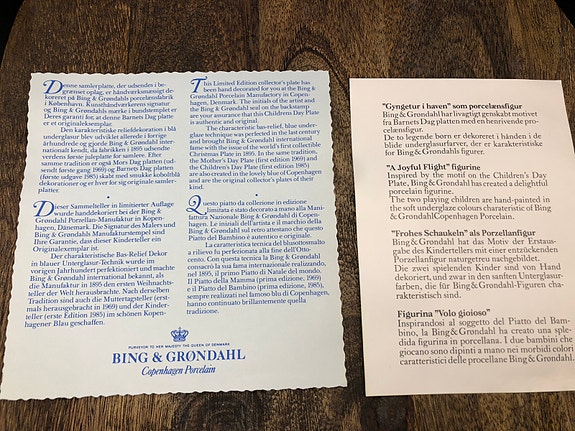 Denne samlerplatte, der udsendes i be-
grænset oplag, er håndværksmæssigt de-
koreret på Bing & Grøndahls porcelænsfabrik
i København. Kunsthåndværkerens signatur
og Bing & Grøndahls mærke i bundstemplet er
Deres garanti for, at denne Barnets Dag platte
er et originaleksemplar.
Den karakteristiske reliefdekoration i blå
underglasur blev udviklet allerede i forrige
århundrede og gjorde Bing & Grøndahl inter-
nationalt kendt, da fabrikken i 1895 udsendte
verdens første juleplatte for samlere. Efter
samme tradition er også Mors Dag platten (ud-
sendt første gang 1969) og Barnets Dag platten
(første udgave 1985) skabt med smukke koboltblå
dekorationer og er hver for sig originale samler-
platter.
Dieser Sammelteller in limitierter Auflage
wurde handdekoriert bei der Bing &
Grøndahl Porzellan-Manufaktur in Kopen-
hagen, Dänemark. Die Signatur des Malers und
Bing & Grøndahls Manufakturstempel sind
Ihre Garantie, dass dieser Kinderteller ein
Originalexemplar ist.
Der charakteristische Bas-Relief Dekor
in blauer Unterglasur-Technik wurde im
vorigen Jahrhundert perfektioniert und machte
Bing & Grøndahl international bekannt, als
die Manufaktur in 1895 den ersten Weihnachts-
teller der Welt herausbrachte. Nach derselben
Tradition sind auch die Muttertagsteller (erst-
mals herausgebracht in 1969) und der Kinder-
teller (erste Edition 1985) im schönen Kopen-
hagener Blau geschaffen.
This Limited Edition collector's plate has
been hand decorated for you at the Bing &
Grøndahl Porcelain Manufactory in Copen-
hagen, Denmark. The initials of the artist and
the Bing & Grøndahl seal on the backstamp
are your assurance that this Childrens Day Plate
is authentic and original.
The characteristic bas-relief, blue under-
glaze technique was perfected in the last century
and brought Bing & Grøndahl international
fame with the issue of the world's first collectible
Christmas Plate in 1895. In the same tradition,
the Mother's Day Plate (first edition 1969) and
the Children's Day Plate (first edition 1985)
are also created in the Copenhagen blue colours
and are the original collector's plates of their
kind.
Questo piatto da collezione in edizione
limitata è stato decorato a mano alla Mani-
fattura Nazionale Bing & Grøndahl di Copen-
hagen. Le iniziali dell'artista e il marchio della
Bing & Grøndahl sul retro attestano che questo
Piatto del Bambino è autentico e originale.
La caratteristica tecnica del bluesottosmalto
a rilievo fu perfezionata alla fine dell'Otto-
cento. Con questa tecnica la Bing & Grøndahl
consacrò la sua fama internazionale realizzando,
nel 1895, il primo Piatto di Natale del mondo.
Il Piatto della Mamma (prima edizione, 1969)
e il Piatto del Bambino (prima edizione, 1985),
sempre realizzati nel famoso blu di Copenhagen,
hanno continuato brillantemente quella
tradizione.
PURVEYOR TO HER MAJESTY THE QUEEN OF DENMARK
BING & GRØNDAHL
Copenhagen Porcelain
"Gyngetur i haven" som porcelænsfigur
Bing & Grøndahl har livagtigt genskabt motivet
fra Barnets Dag platten med en henrivende por-
celænsfigur.
De to legende børn er dekoreret i hånden i de
blide underglasurfarver, der er karakteristiske
for Bing & Grøndahls figurer.
"A Joyful Flight" figurine
Inspired by the motif on the Children's Day
Plate, Bing & Grøndahl has created a delightful
porcelain figurine.
The two playing children are hand-painted in
the soft underglaze colours charateristic of Bing
& GrøndahlCopenhagen Porcelain.
"Frohes Schaukeln" als Porzellanfigur
Bing & Grøndahl hat das Motiv der Erstaus-
gabe des Kindertellers mit einer entzückenden
Porzellanfigur naturgetreu nachgebildet.
Die zwei spielenden Kinder sind von Hand
dekoriert, und zwar in den sanften Unterglasur-
farben, die für Bing & Grøndahl-Figuren cha-
rakteristisch sind.
Figurina "Volo gioioso"
Inspirandosi al soggetto del Piatto del Bam-
bino, la Bing & Grøndahl ha creato una splen-
dida figurina in porcellana. I due bambini che
giocano sono dipinti a mano nei morbidi colori
caratteristici delle porcellane Bing & Grøndahl.